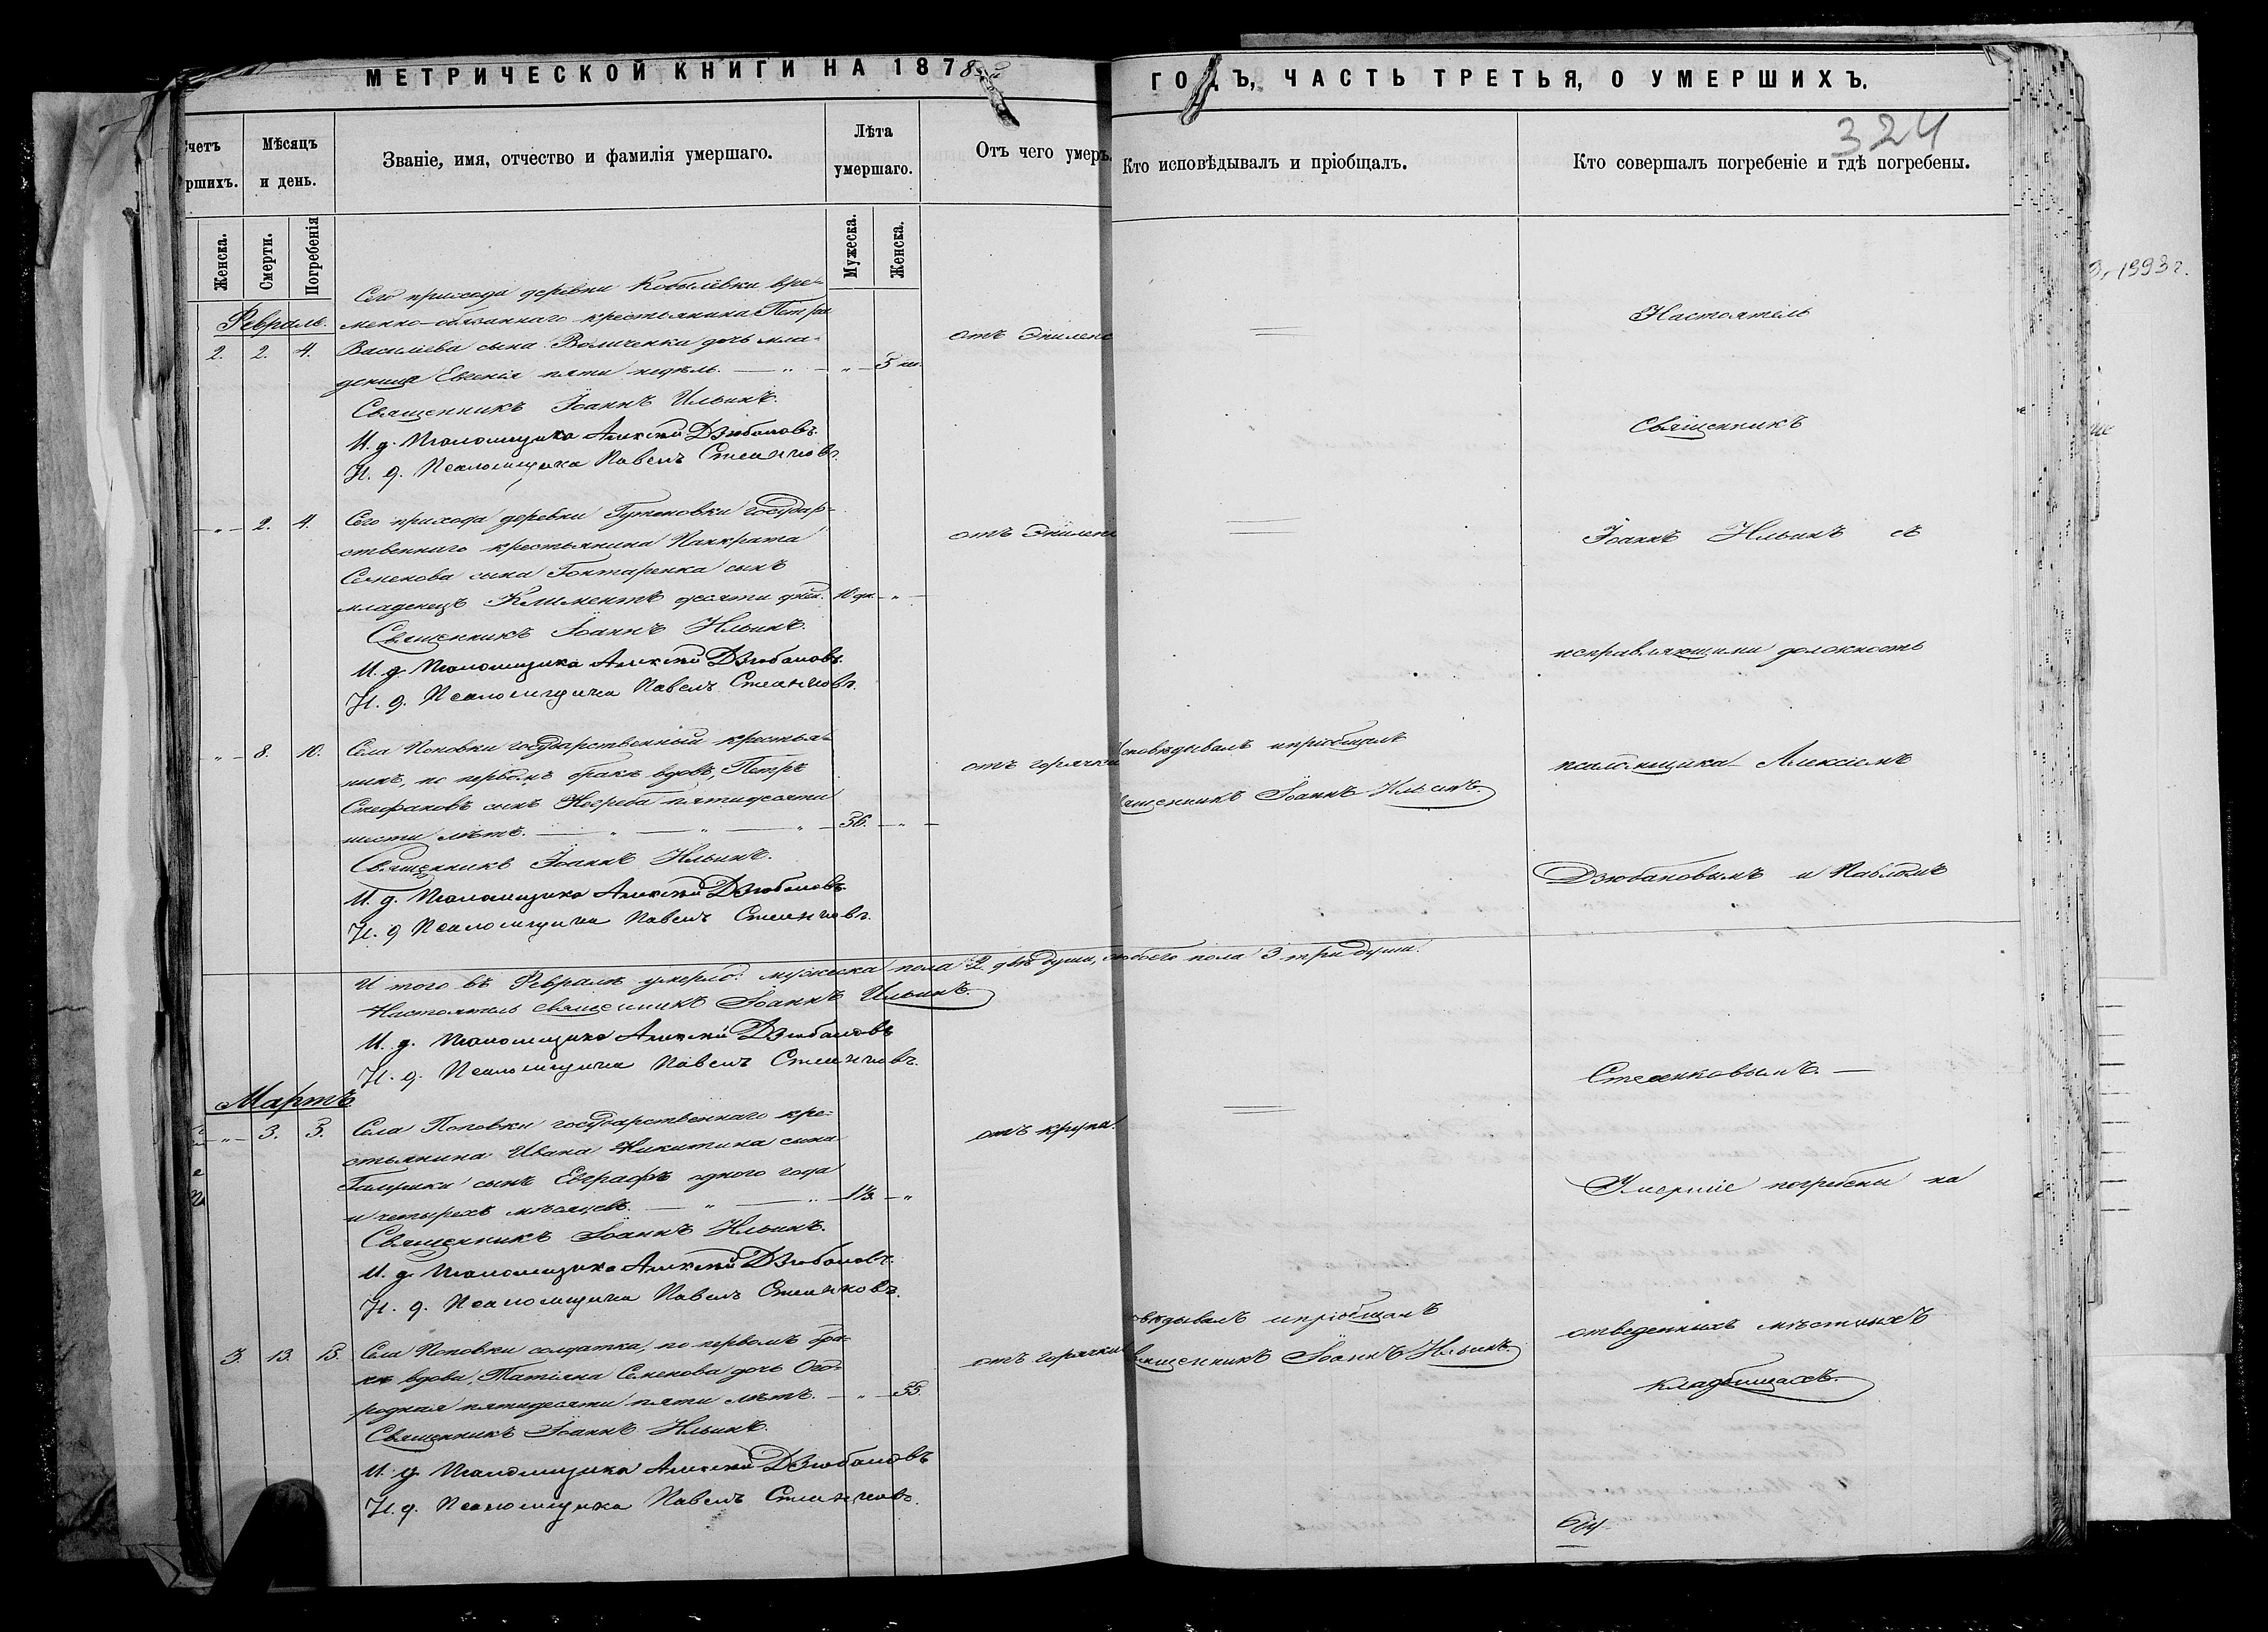 МЕТРИЧЕСКОЙ КНИГИ НА 1878
ГОДЪ, ЧАСТЬ ТРЕТЬЯ, О УМЕРШИХЪ.
324
Счетъ
ршихъ.
Мѣсяцъ
и день.
Званіе, имя, отчество и фамилія умершаго.
Лѣта
умершаго.
Отъ чего умеръ.
Кто исповѣдывалъ и пріобщалъ.
Кто совершалъ погребеніе и гдѣ погребены.
Женска.
Смерти.
Погребенія
Мужеска.
Женска.
1993 г.
Февраль.
2. 2. 4.
Сего прихода деревни Кобылевки вре-
менно-обязаннаго крестьянина Петра
Василіева сына Величенка дочь мла-
деница Евгенія пяти недѣль. 5 н.
отъ Эпилепс
Священникъ Іоаннъ Ильинъ.
И. д. Псаломщика Алексѣй Дзюбановъ.
И. д. Псаломщика Павелъ Стеенковъ.
2. 4.
Сего прихода деревни Гуженовки государ-
ственнаго крестьянина Панкрата
Семенова сына Гонтаренка сынъ
младенецъ Климентъ десяти дней. 10 дн.
отъ Эпилепс
Священникъ Іоаннъ Ильинъ.
И. д. Псаломщика Алексѣй Дзюбановъ.
И. д. Псаломщика Павелъ Стеенковъ.
8. 10.
Села Поповки государственный крестья-
нинъ, по первомъ бракѣ вдовъ, Петръ
Стефановъ сынъ Негреба пятидесяти
шести лѣтъ. 56.
отъ горячки
Исповѣдывалъ и пріобщалъ
Священникъ Іоаннъ Ильинъ.
Священникъ Іоаннъ Ильинъ.
И. д. Псаломщика Алексѣй Дзюбановъ.
И. д. Псаломщика Павелъ Стеенковъ.
И того въ Февралѣ умерло: мужеска пола 2 двѣ души, обоего пола 3 три души.
Настоятель священникъ Іоаннъ Ильинъ.
И. д. Псаломщика Алексѣй Дзюбановъ
И. д. Псаломщика Павелъ Стеенковъ.
Мартъ
3. 3.
Села Поповки государственнаго кре-
стьянина Ивана Никитина сына
сынъ Евграфъ одного года
и четырехъ мѣсяцевъ. 1⅓.
отъ крупа.
Священникъ Іоаннъ Ильинъ.
И. д. Псаломщика Алексѣй Дзюбановъ.
И. д. Псаломщика Павелъ Стеенковъ.
3. 13. 15.
Села Поповки солдатка, по первомъ бра-
кѣ вдова, Татіана Семенова дочь Ого-
родная пятидесяти пяти лѣтъ. 55.
отъ горячки
овѣдывалъ и пріобщалъ
Священникъ Іоаннъ Ильинъ
Священникъ Іоаннъ Ильинъ.
И. д. Псаломщика Алексѣй Дзюбановъ
И. д. Псаломщика Павелъ Стеенковъ.
Настоятель
Священникъ
Іоаннъ Ильинъ съ
исправляющими должность
псаломщика Алексіемъ
Дзюбановымъ и Павломъ
Стеенковымъ.
Умершіе погребены на
отведенныхъ мѣстныхъ
кладбищахъ.